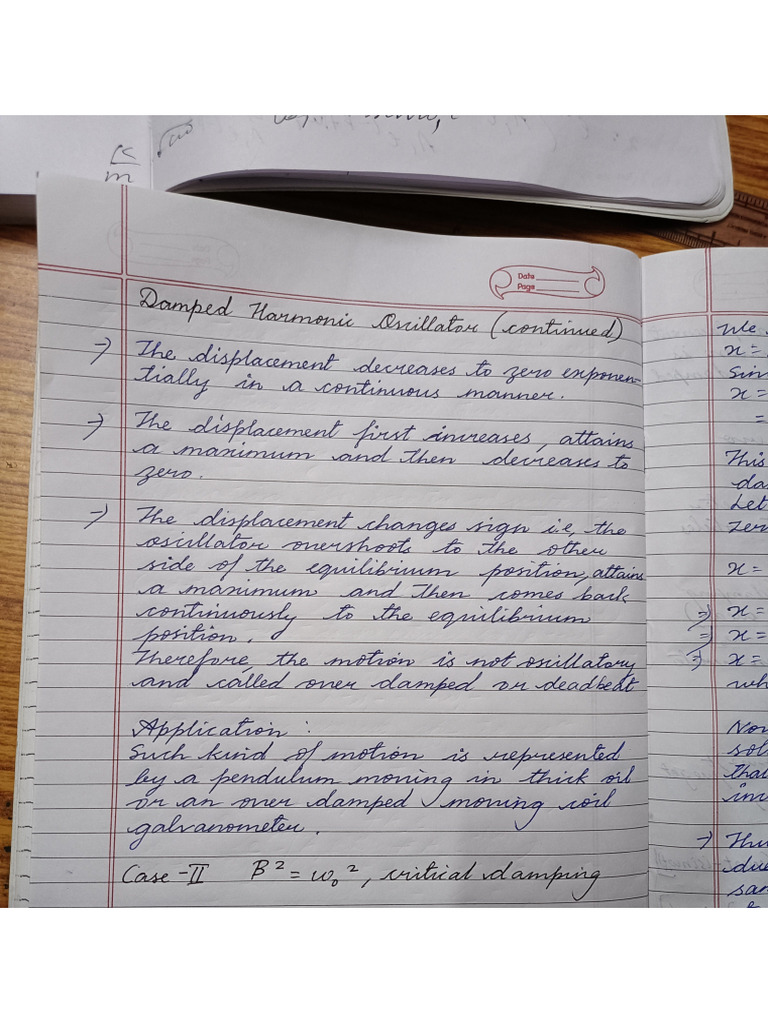 K
m
Date
Page
Damped Harmonic Oscillator (continued)
→ The displacement decreases to zero exponen-
tially in a continuous manner.
→ The displacement first increases, attains
a maximum and then decreases to
zero.
→ The displacement changes sign i.e, the
oscillator overshoots to the other
side of the equilibrium position, attains
a maximum and then comes back
continuously to the equilibrium
position.
Therefore, the motion is not oscillatory
and called over damped or deadbeat
Application :
Such kind of motion is represented
by a pendulum moving in thick oil
or an over damped moving coil
galvanometer.
Case - II B² = ω₀², critical damping
We
x =
Sin
x =
=
This
da
Let
zero
x =
⇒ x =
⇒ x =
⇒ x =
wh
Now
sol
that
inc
→ Thu
due
san